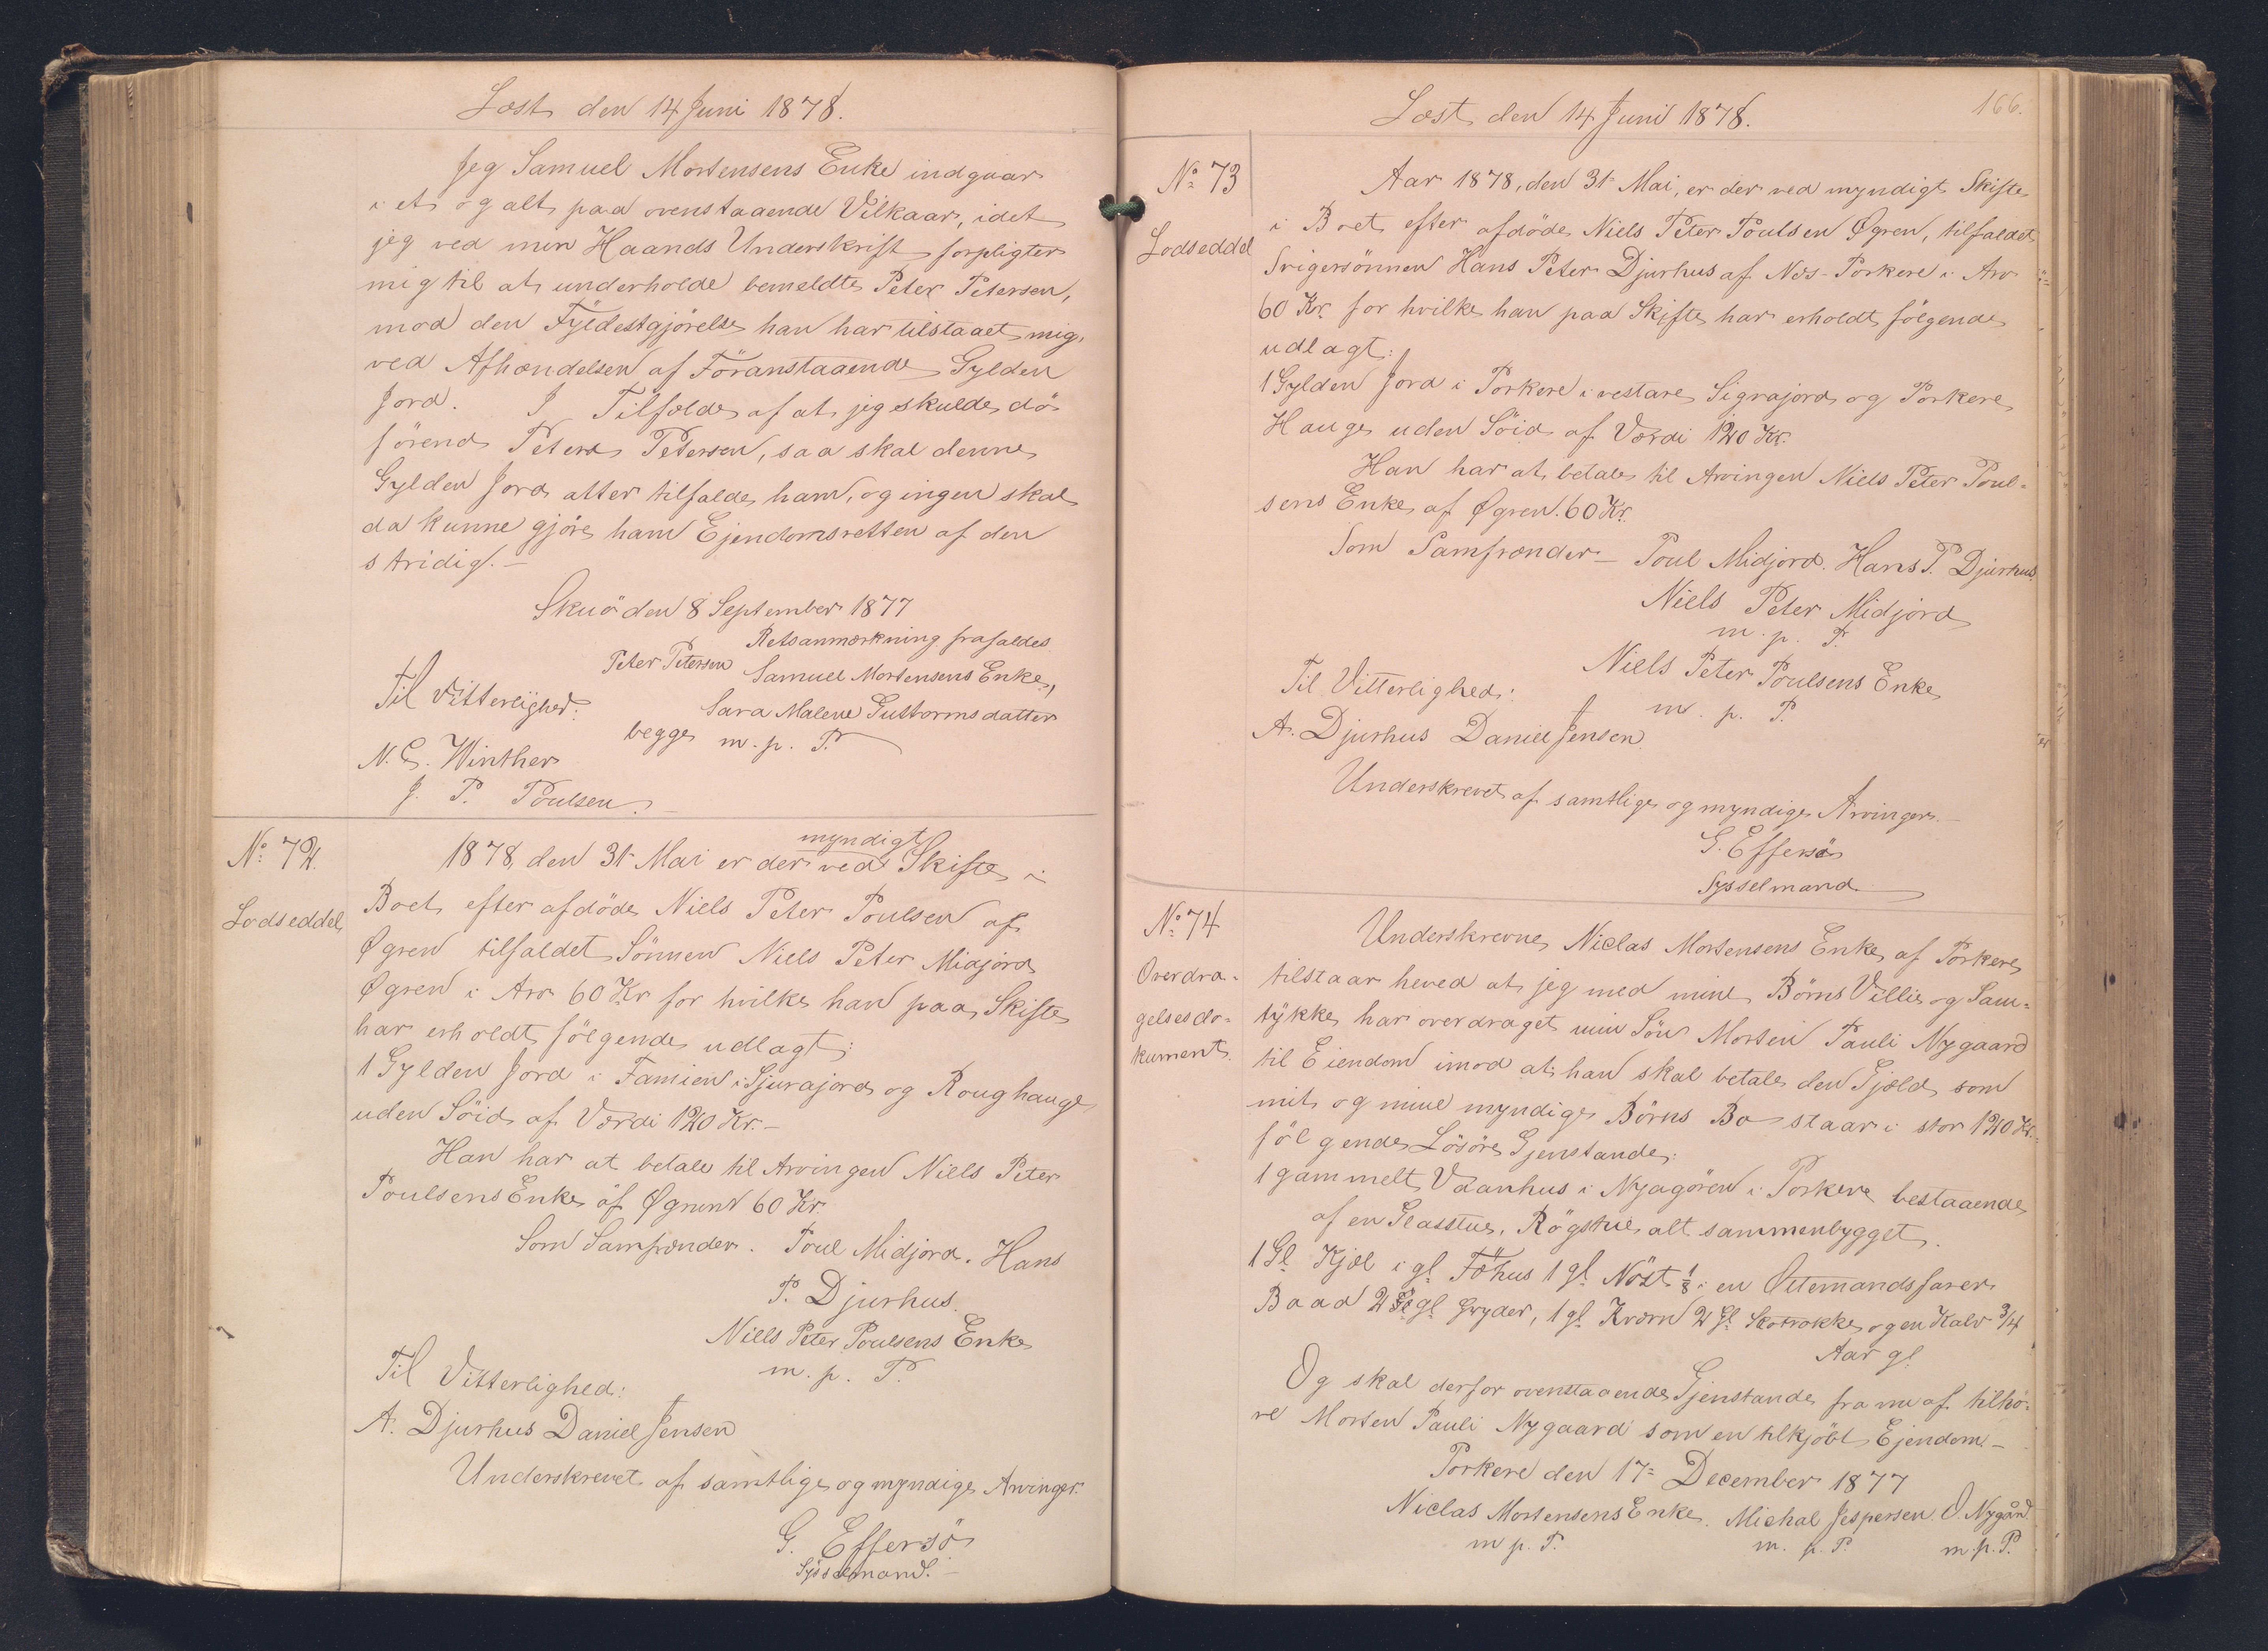 Læst den 14 Juni 1878.
Jeg Samuel Mortensens Enke indgaar
i et og alt paa ovenstaaende Vilkaar, idet
jeg ved min Haands Underskrift forpligter
mig til at underholde bemeldte Peter Petersen,
mod den Fyldestgjörelse han har tilstaaet mig,
ved Afhændelsen af Foranstaaende Gylden
Jord. I Tilfælde af at jeg skulde dö
förend Peter Petersen, saa skal denne
Gylden Jord atter tilfalde ham, og ingen skal
da kunne gjöre ham Ejendomsretten af den
stridig.-
Skuö den 8 September 1877
Retsanmærkning frafaldes
Peter Petersen Samuel Mortensens Enke,
Til Vitterlighed: Sara Malene Guttormsdatter
begge m. p. P.
N. C. Winther
J. P. Poulsen.-
No 72.
Lodseddel
myndigt
1878, den 31 Mai er der ved Skifte i
Boet efter afdöde Niels Peter Poulsen af
Øgren tilfaldet Sönnen Niels Peter Midjord
Øgren i Arv 60 Kr for hvilke han paa Skifte
har erholdt fölgende udlagt:
1 Gylden Jord i Famien i Sjurajord og Roughauge
uden Söid af Værdi 120 Kr.-
Han har at betale til Arvingen Niels Peter
Poulsens Enke af Øgrunt 60 Kr.
Som Samfrænder. Poul Midjord. Hans
P. Djurhus.
Niels Peter Poulsens Enke
m. p. P.
Til Vitterlighed:
A. Djurhus Daniel Jensen
Underskrevet af samtlige og myndige Arvinger.
G. Effersö
Sysselmand.-
166.
Læst den 14 Juni 1878.
No 73
Lodseddel
Aar 1878, den 31 Mai, er der ved myndigt Skifte
i Boet efter afdöde Niels Peter Poulsen Øgren, tilfaldet
Svigersönnen Hans Peter Djurhus af Næs-Porkere i Arv
60 Kr. for hvilke han paa Skifte har erholdt fölgende
udlagt:
1 Gylden Jord i Porkere i vestare Sigrajord og Porkere
Hauge uden Söid af Værdi 120 Kr.
Han har at betale til Arvingen Niels Peter Poul-
sens Enke af Øgren. 60 Kr.
Som Samfrænder- Poul Midjord. Hans P. Djurhus
Niels Peter Midjord
m. p. P.
Niels Peter Poulsens Enke
m. p. P.
Til Vitterlighed:
A. Djurhus Daniel Jensen
Underskrevet af samtlige og myndige Arvinger.-
G. Effersö
Sysselmand.
No 74
Overdra-
gelsesdo-
kument.
Underskrevne Niclas Mortensens Enke af Porkere
tilstaar heved at jeg med mine Börns Villie og Sam-
tykke har overdraget min Sön Morten Pauli Nygaard
til Eiendom imod at han skal betale den Gjæld som
mit og mine myndige Börns Bo staar i stor 120 Kr.
fölgende Lösöre Gjenstande:
1 gammelt Vaanhus i Nyagören i Porkere bestaaende
af en Glasstue, Rögstue alt sammenbygget.
1 Gl. Kjæl i gl. Fæhus 1 gl. Nöst 1/8 i en Ottemandsfarer
Baad 2 gl. Gryder, 1 gl. Kværn 2 Gl. Skotrokke og en Kalv 3/4
Aar gl.
Og skal derfor ovenstaaende Gjenstande fra nu af tilhö-
re Morten Pauli Nygaard som en tilkjöbt Ejendom.-
Porkere den 17= December 1877
Niclas Mortensens Enke. Michal Jespersen. O. Nygård
m. p. P. m. p. P. m. p. P.